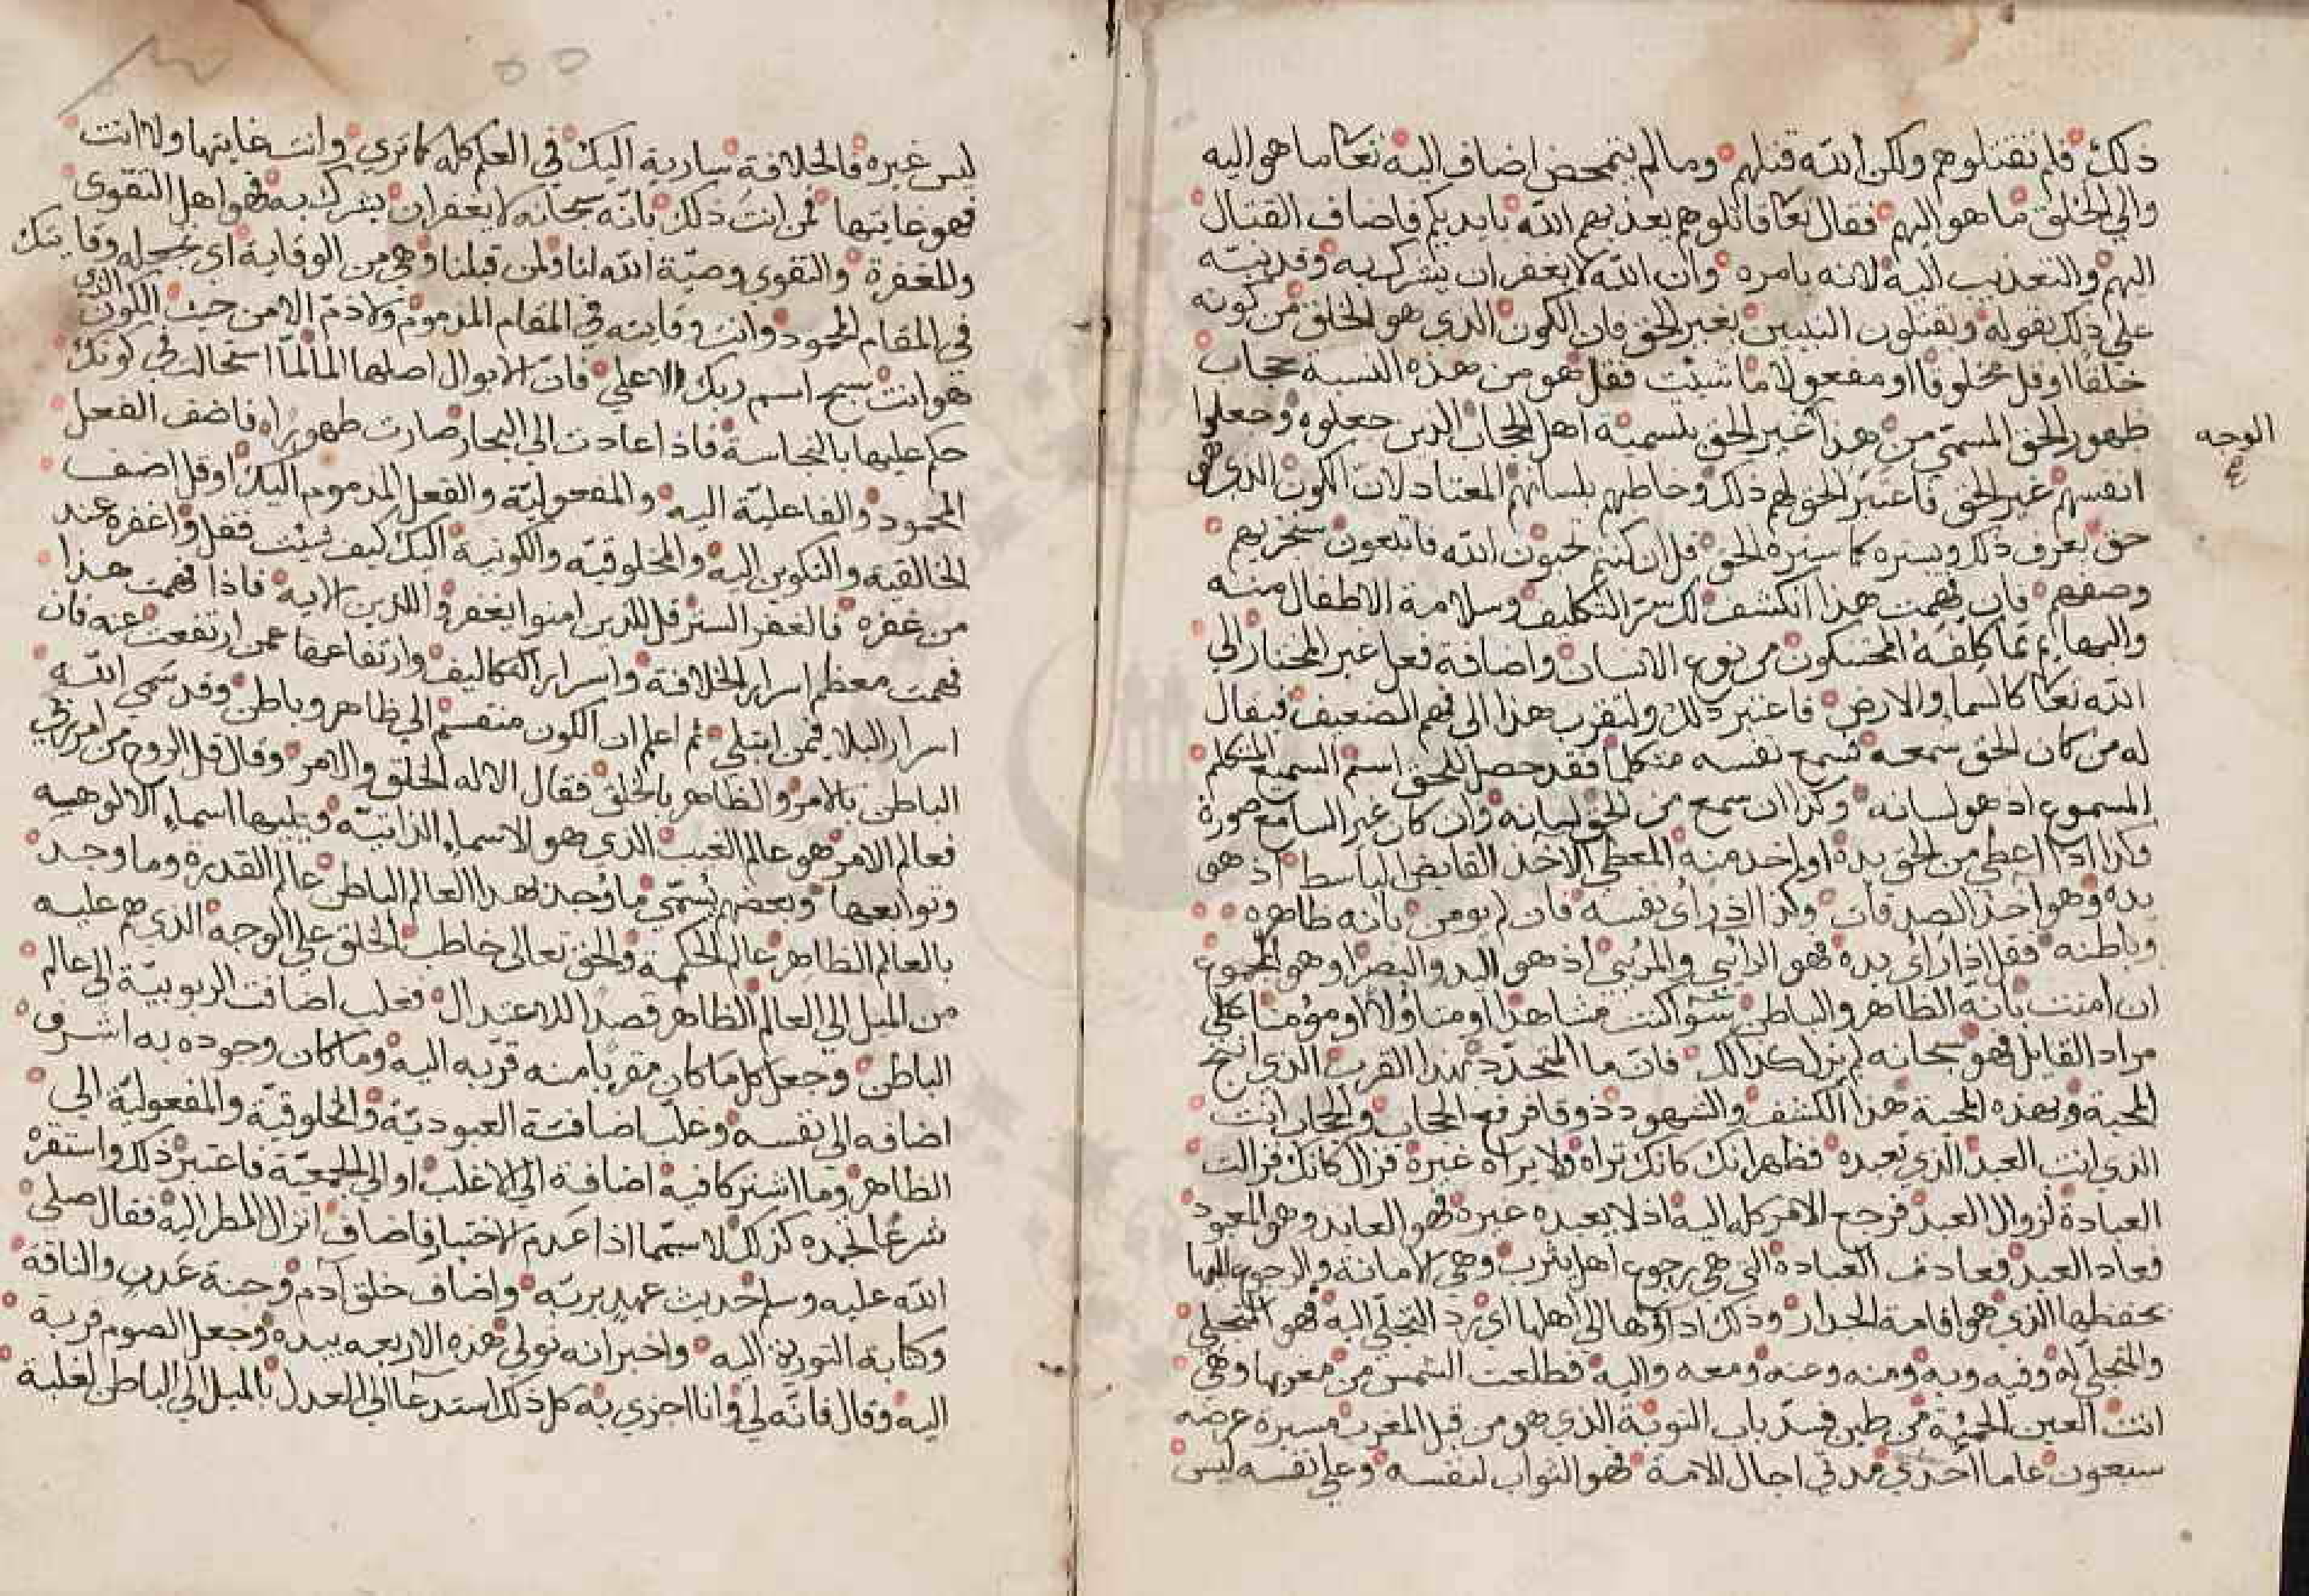 ذلك فلم تقتلوهم ولكن الله قتلهم وما لم يتمحض اضاف اليه تعا ما هو اليه
والي الخلق ما هو اليهم فقال تعا قاتلوهم يعذبهم الله بايديكم فاضاف القتال
اليهم والتعذيب اليه لانه بامره وان الله لا يغفر ان يشرك به وقد نبّه
علي ذلك بقوله ويقتلون النبيين بغير الحق فان الكون الذي هو الخلق من كونه
خلقا او قل مخلوقا او مفعولا ما شيت فقل هو من هذه النسبة حجاب
ظهور الحق المسمّي من هذا غير الحق بتسمية اهل الحجاب الذين جعلوه وجعلوا
الوجه
انفسهم غير الحق فاعتبر الحق لهم ذلك وخاطبهم بلسانهم المعتاد لان الكون الذي هو
حق يعرف ذلك ويستره كما ستره الحق قل ان كنتم تحبون الله فاتبعون سنجزيهم
وصفهم فان فهمت هذا انكشف لك سر التكليف وسلامة الاطفال منه
والبهايم مما كلفه المحتنكون من نوع الانسان واضافة فعل غير المختار الي
الله تعا كالسما والارض فاعتبر ذلك ولتقرب هذا الى فهم الضعيف فيقال
له من كان الحق سمعه فسمع نفسه متكلما فقد حصل للحق اسم السميع المتكلم
المسموع اذ هو لسانه وكذا ان سمع من الحق لسانه وان كان غير السامع صورة
وكذا اذا اعطي من الحق يده او اخذ منه المعطي الاخذ القابض الباسط اذ هو
يده وهو اخذ الصدقات وكذا اذا رأى نفسه فان لم يومن بانه ظاهره
وباطنه فقل اذا رأى يده فهو الرائي والمرئي اذ هو اليد والبصر او هو المجموع
ان امنت بانه الظاهر والباطن سوا كنت مشاهدا او متاولا او مؤمنا علي
مراد القايل فهو سبحانه لم يزل كذلك فان ما المتجدد بهذا القرب الذي انتج
المحبة وبهذه المحبة هذا الكشف والشهود ذوقا فرفع الحجاب والحجاب انت
الذي انت العبد الذي تعبده فظهر انك كانك تراه ولا يراه غيره فزال كانك فزالت
العبادة لزوال العبد فرجع الامر كله اليه اذ لا يعبده غيره فهو العابد وهو المعبود
فعاد العبد فعادت العبادة التي هي رجوع اهل يثرب وهي الامانة والرجوع اليها
بحفظها الذي هو اقامة الجدار وذلك اداؤها الي اهلها اي يرد التجلّي اليه فهو المتجلي
والمتجلّي له وفيه وبه ومنه وعنه ومعه واليه فطلعت الشمس من مغربها وهي
انت العين الحمئة من طين فسد باب التوبة الذي هو من قبل المغرب مسيرة عرضه
سبعون عاما احدي مدتي اجال الامة فهو التواب لنفسه وعلي نفسه ليس
ليس غيره فالخلافة سارية اليك في العلم كله كما تري وانت غايتها ولا انت
فهو غايتها فمن انت ذلك بانه سبحانه لا يغفر ان يشرك به فهو اهل التقوى
وللمغفرة والتقوى وصيّة الله لنا ولمن قبلنا وهي من الوقاية اي تجعله وقايتك
في المقام المحمود وانت وقايته في المقام المذموم ولا ذم الا من حيث الكون الذي
هو انت سبح اسم ربك الاعلي فان الابوال اصلها الما لما استحالت في كونك
حكم عليها بالنجاسة فاذا عادت الي البحار صارت طهورا فاضف الفعل
المحمود والفاعليّة اليه والمفعوليّة والفعل المذموم اليك او قل اضف
الخالقية والتكوين اليه والمخلوقيّة والكونية اليك كيف شيت فقل واغفره عند
من غفره فالغفر الستر قل للذين امنوا يغفروا للذين الاية فاذا فهمت هذا
فهمت معظم اسرار الخلافة واسرار التكاليف وارتفاعها عمن ارتفعت عنه فان
اسرار البلا فمن ابتلي ثم اعلم ان الكون منقسم الي ظاهر وباطن وقد سمي الله
الباطن بالامر والظاهر بالخلق فقال الا له الخلق والامر وقال قل الروح من امر ربي
فعالم الامر هو عالم الغيب الذي هو الاسماء الذاتيّه ويليها اسماء الالوهيه
وتوابعها وبعضهم يُسمّي ما وُجد بهذا العالم الباطن عالم القدرة وما وجد
بالعالم الظاهر عالم الحكمة والحق تعالى خاطب الخلق علي الوجه الذي هم عليه
من الميل الي العالم الظاهر قصدا للاعتدال فغلب اضافت الربوبيّة الي عالم
الباطن وجعل كل ما كان مقربا منه قربه اليه وما كان وجوده به اشرف
اضافه الي نفسه وغلّب اضافة العبوديّة والمخلوقيّة والمفعوليّة الي
الظاهر وما اشتركا فيه اضافة الي الاغلب او الي الجمعيّة فاعتبر ذلك واستقر
شرعا تجده كذلك لا سيّما اذا عدم الاختيار فاضاف انزال المطر اليه فقال صلي
الله عليه وسلم حديث عهد بربّه واضاف خلق آدم وجنة عدن والناقة
وكتابة التورية اليه واخبر انه تولي هذه الاربعه بيده وجعل الصوم قربة
اليه وقال فانّه لي وانا اجزي به كل ذلك استدعا الي العدل بالميل الي الباطن لغلبة